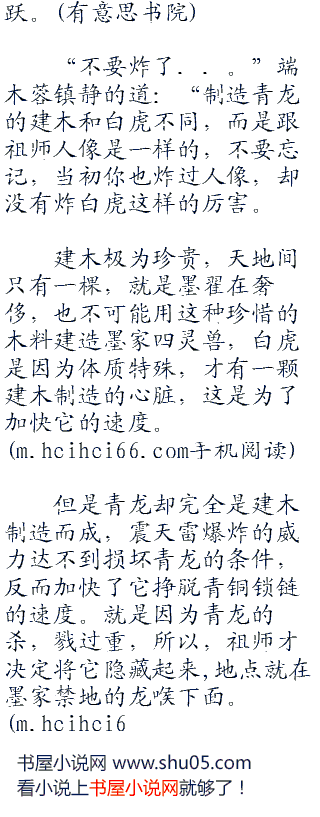 跃。(有意思书院)
“不要炸了．．。”端
木蓉镇静的道：“制造青龙
的建木和白虎不同，而是跟
祖师人像是一样的，不要忘
记，当初你也炸过人像，却
没有炸白虎这样的厉害。
建木极为珍贵，天地间
只有一棵，就是墨翟在奢
侈，也不可能用这种珍惜的
木料建造墨家四灵兽，白虎
是因为体质特殊，才有一颗
建木制造的心脏，这是为了
加快它的速度。
(m.hcihci66.com手机阅读)
但是青龙却完全是建木
制造而成，震天雷爆炸的威
力达不到损坏青龙的条件，
反而加快了它挣脱青铜锁链
的速度。就是因为青龙的
杀，戮过重，所以，祖师才
决定将它隐藏起来,地点就在
墨家禁地的龙喉下面。
(m.hcihci6
书屋小说网 www.shu05.com
看小说上书屋小说网就够了！